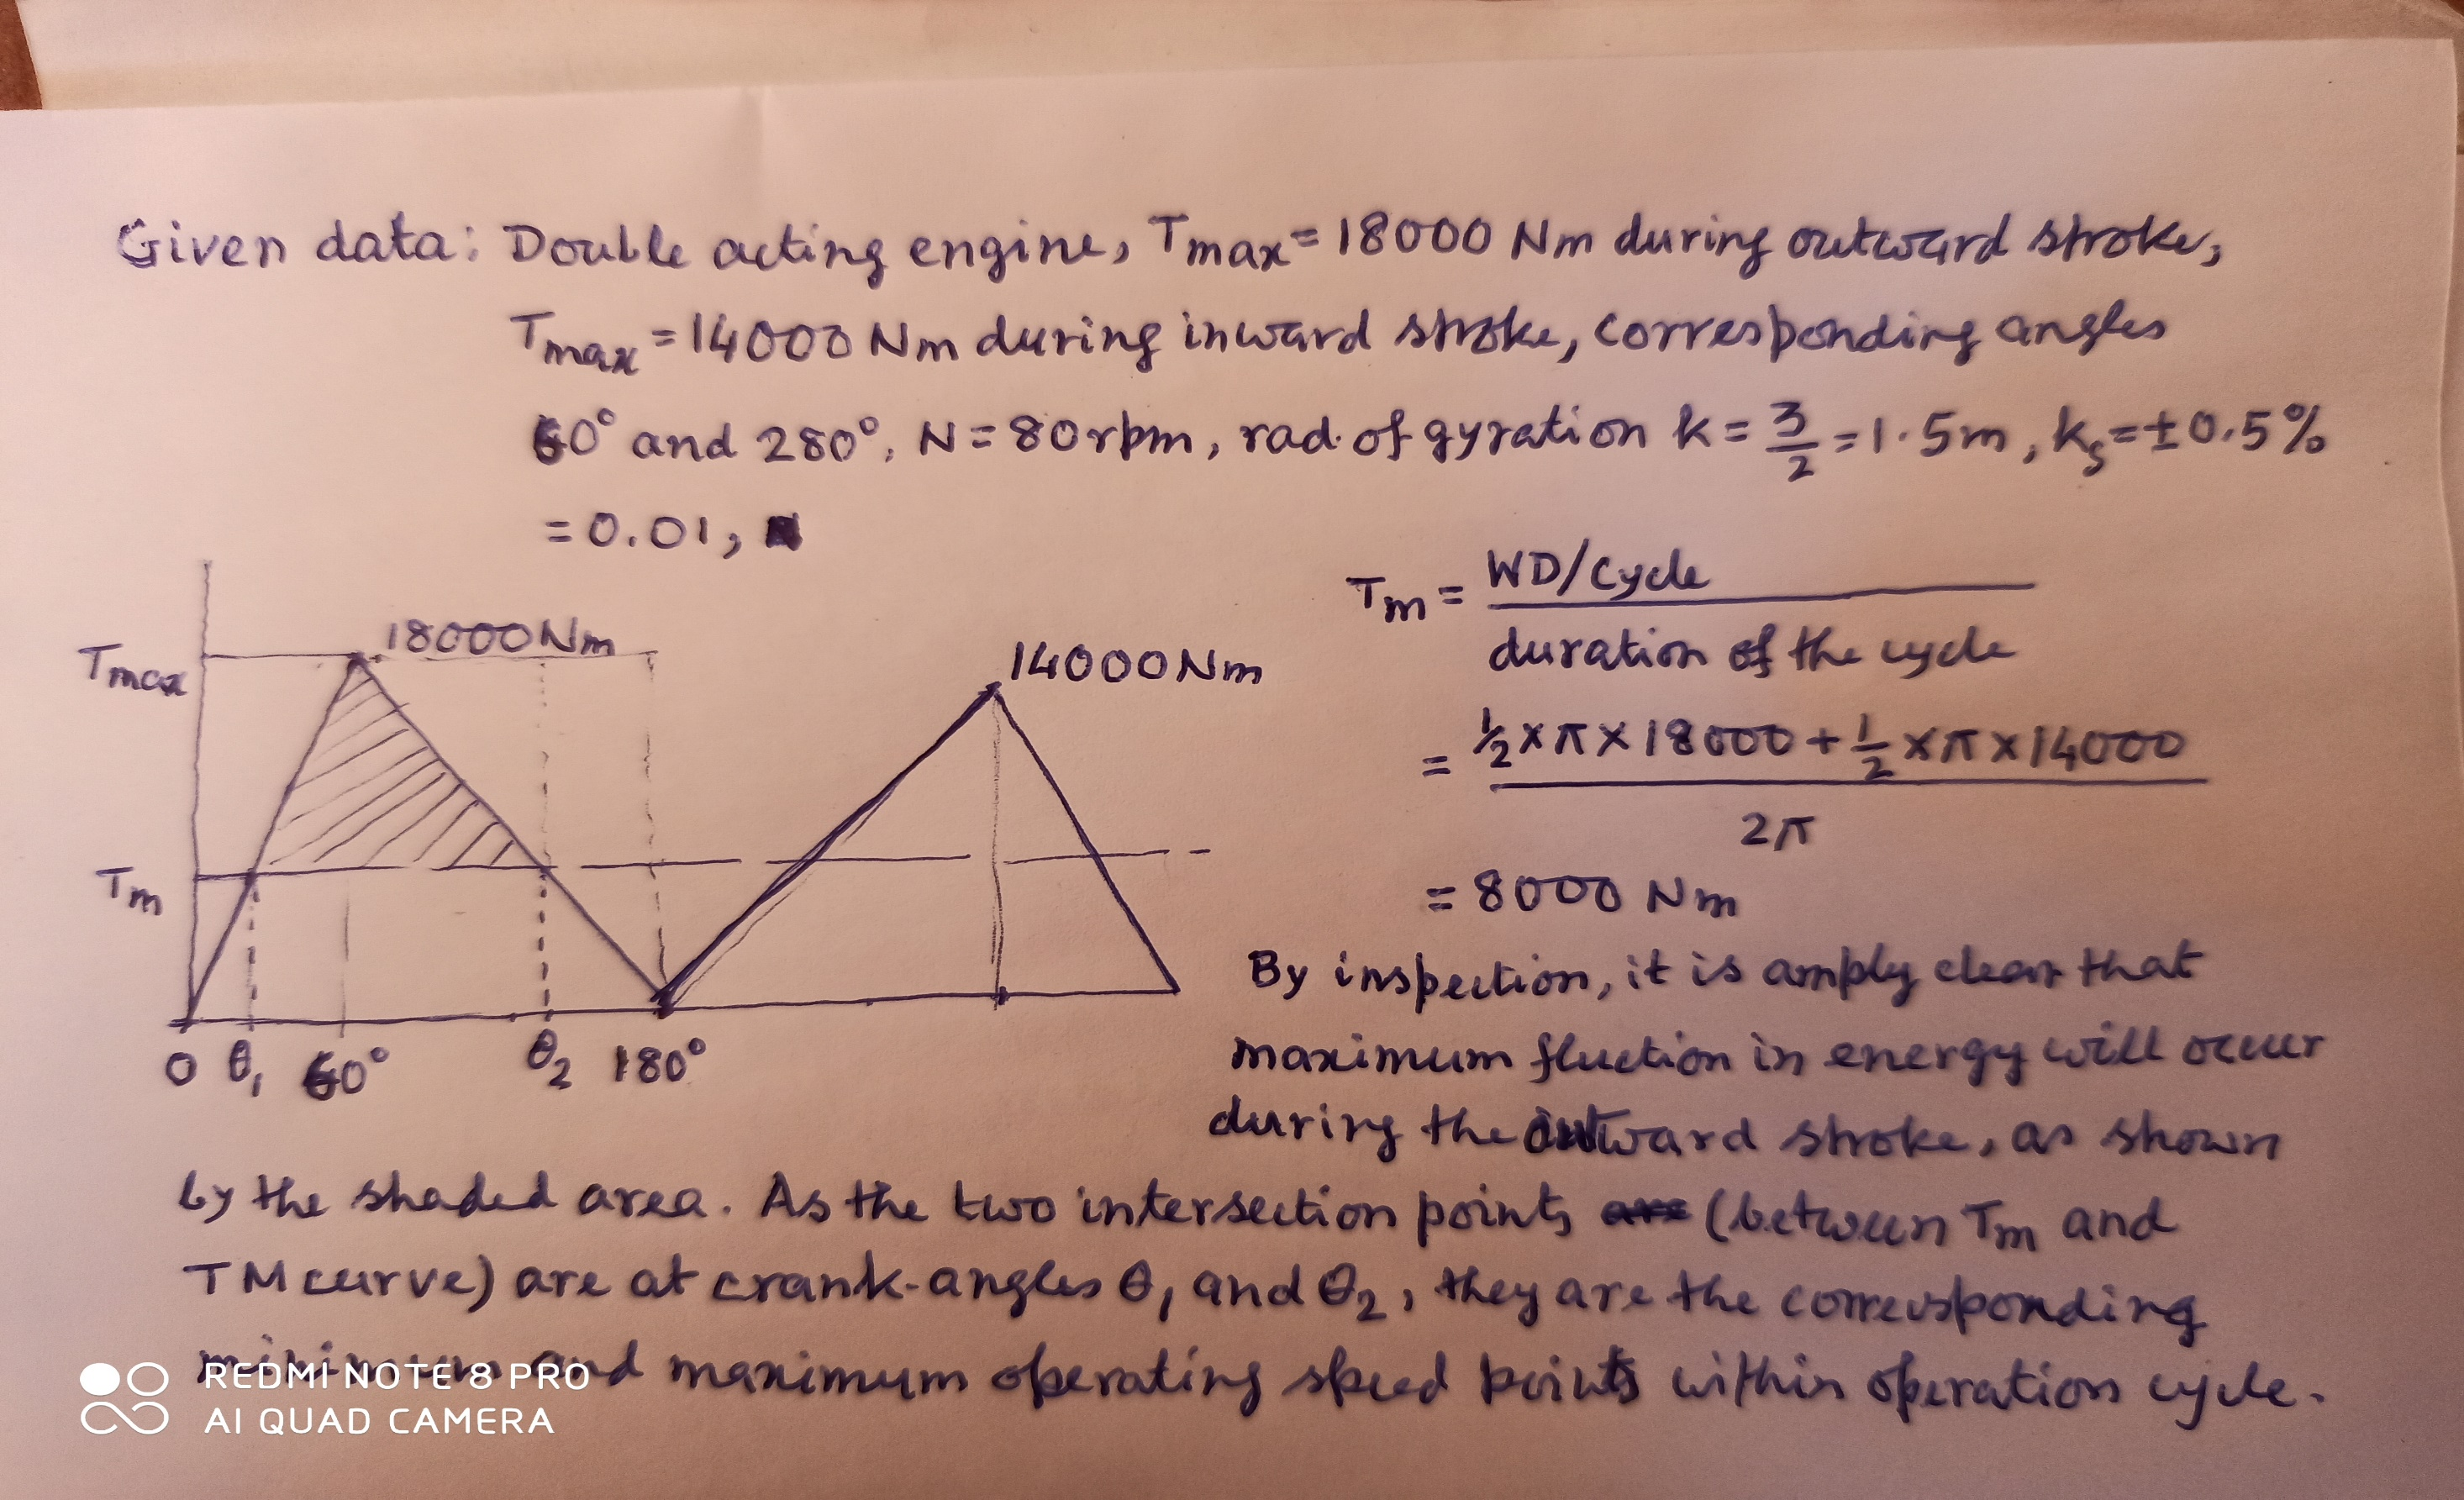 Given data: Double acting engine, Tmax = 18000 Nm during outward stroke,
Tmax = 14000 Nm during inward stroke, corresponding angles
60° and 280°, N = 80rpm, rad. of gyration k = 3/2 = 1.5m, ks = ±0.5%
= 0.01,
Tm = WD/Cycle
duration of the cycle
= 1/2 × π × 18000 + 1/2 × π × 14000
2π
= 8000 Nm
Tmax
18000Nm
14000Nm
Tm
0 θ1 60° θ2 180°
By inspection, it is amply clear that
maximum fluction in energy will occur
during the outward stroke, as shown
by the shaded area. As the two intersection points (between Tm and
TM curve) are at crank-angles θ1 and θ2, they are the corresponding
minimum and maximum operating speed points within operation cycle.
REDMI NOTE 8 PRO
AI QUAD CAMERA